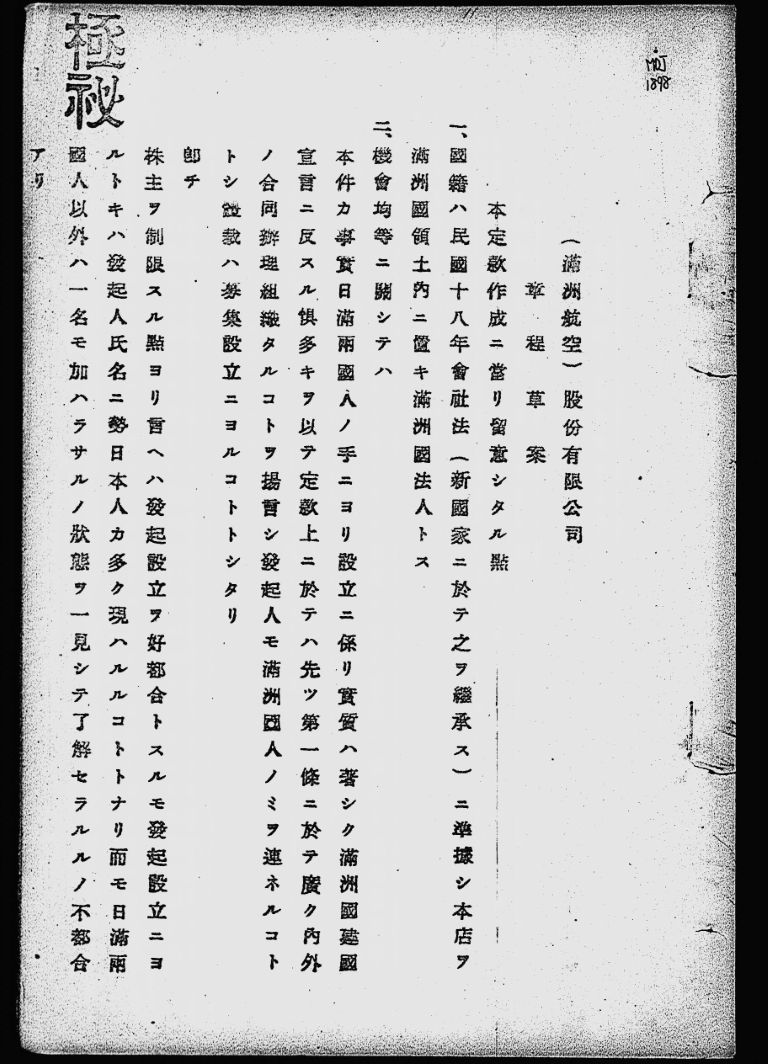 MOJ
1898
極祕
(滿洲航空)股份有限公司
章程草案
本定款作成ニ當リ留意シタル點
一、國籍ハ民國十八年會社法(新國家ニ於テ之ヲ繼承ス)ニ準據シ本店ヲ
滿洲國領土內ニ置キ滿洲國法人トス
二、機會均等ニ關シテハ
本件カ事實日滿兩國人ノ手ニヨリ設立ニ係リ實質ハ著シク滿洲國建國
宣言ニ反スル惧多キヲ以テ定款上ニ於テハ先ツ第一條ニ於テ廣ク內外
ノ合同辦理組織タルコトヲ揚言シ發起人モ滿洲國人ノミヲ連ネルコト
トシ體裁ハ募集設立ニヨルコトトシタリ
卽チ
株主ヲ制限スル點ヨリ言ヘハ發起設立ヲ好都合トスルモ發起設立ニヨ
ルトキハ發起人氏名ニ勢日本人カ多ク現ハルルコトトナリ而モ日滿兩
國人以外ハ一名モ加ハラサルノ狀態ヲ一見シテ了解セラルルノ不都合
アリ